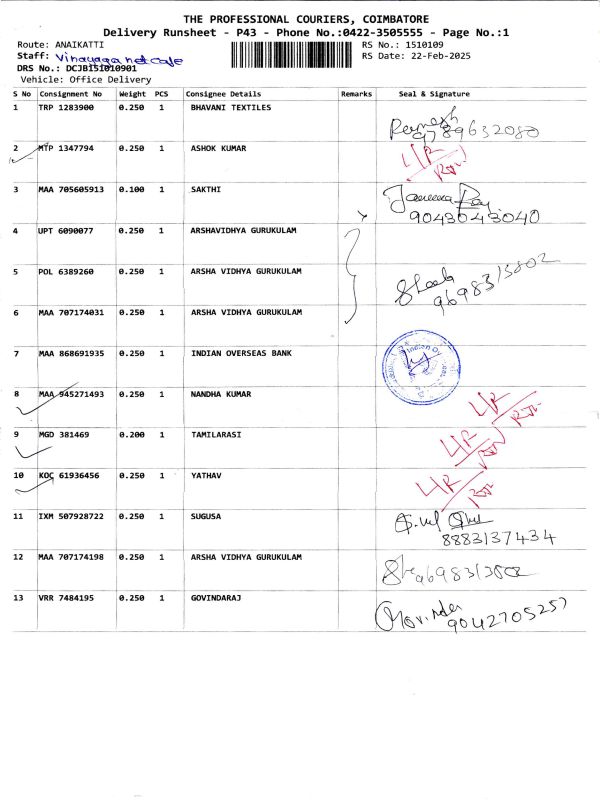 THE PROFESSIONAL COURIERS, COIMBATORE
Delivery Runsheet - P43 - Phone No.:0422-3505555 - Page No.:1
Route: ANAIKATTI RS No.: 1510109
Staff: Vinayaga net cafe RS Date: 22-Feb-2025
DRS No.: DCJBI51010901
Vehicle: Office Delivery
S No Consignment No Weight PCS Consignee Details Remarks Seal & Signature
1 TRP 1283900 0.250 1 BHAVANI TEXTILES
9789632080
2 MTP 1347794 0.250 1 ASHOK KUMAR
3 MAA 705605913 0.100 1 SAKTHI
9043043040
4 UPT 6090077 0.250 1 ARSHAVIDHYA GURUKULAM
5 POL 6389260 0.250 1 ARSHA VIDHYA GURUKULAM
9698313802
6 MAA 707174031 0.250 1 ARSHA VIDHYA GURUKULAM
7 MAA 868691935 0.250 1 INDIAN OVERSEAS BANK
Indian O
8 MAA 945271493 0.250 1 NANDHA KUMAR
9 MGD 381469 0.200 1 TAMILARASI
10 KOC 61936456 0.250 1 YATHAV
11 IXM 507928722 0.250 1 SUGUSA
8883137434
12 MAA 707174198 0.250 1 ARSHA VIDHYA GURUKULAM
9698313802
13 VRR 7484195 0.250 1 GOVINDARAJ
9042705257